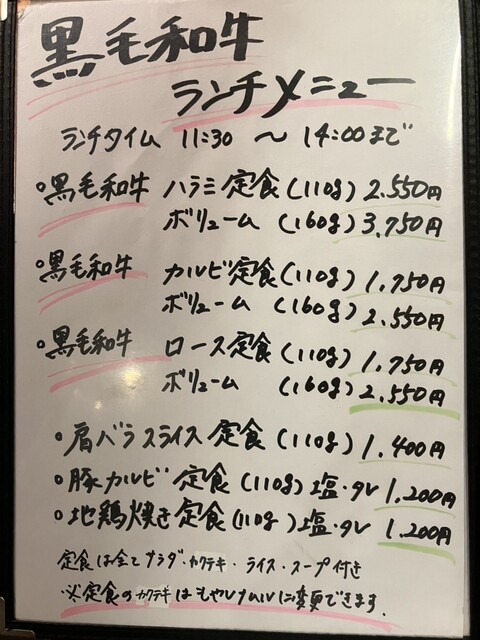 黒毛和牛
ランチメニュー
ランチタイム 11:30 〜 14:00まで
○黒毛和牛 ハラミ定食(110g) 2.550円
ボリューム (160g) 3.750円
○黒毛和牛 カルビ定食(110g) 1.750円
ボリューム (160g) 2.550円
○黒毛和牛 ロース定食(110g) 1.750円
ボリューム (160g) 2.550円
○肩バラスライス定食(110g) 1.400円
○豚カルビ定食(110g) 塩・タレ 1.200円
○地鶏焼き定食(110g) 塩・タレ 1.200円
定食は全てサラダ・カクテキ・ライス・スープ付き
※定食のカクテキはもやしナムルに変更できます.